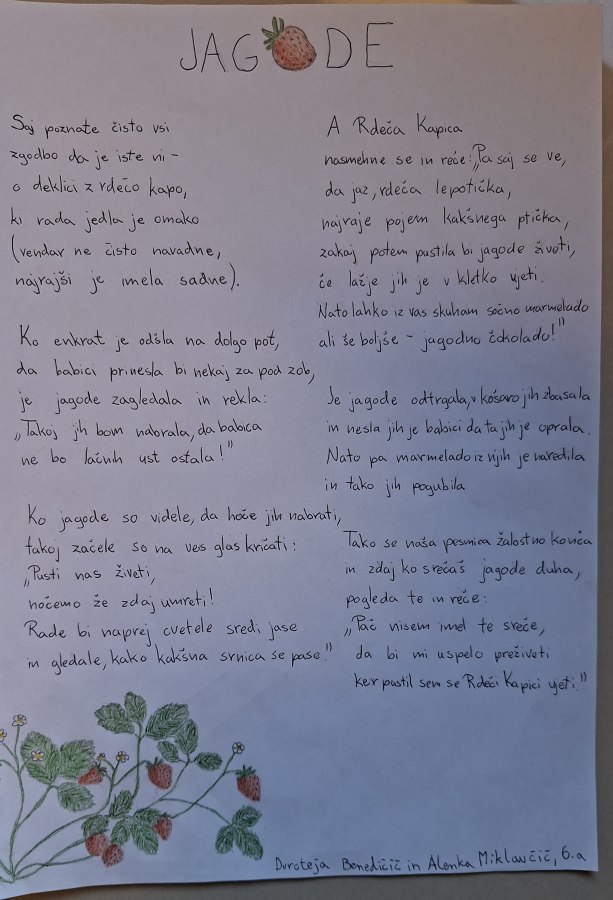 JAGODE
Saj poznate čisto vsi
zgodbo da je iste ni -
o deklici z rdečo kapo,
ki rada jedla je omako
(vendar ne čisto navadne,
najrajši je imela sadne).
Ko enkrat je odšla na dolgo pot,
da babici prinesla bi nekaj za pod zob,
je jagode zagledala in rekla:
„Takoj jih bom nabrala, da babica
ne bo lačnih ust ostala!"
Ko jagode so videle, da hoče jih nabrati,
takoj začele so na ves glas kričati:
„Pusti nas živeti,
nočemo že zdaj umreti!
Rade bi naprej cvetele sredi jase
in gledale, kako kakšna srnica se pase."
A Rdeča Kapica
nasmehne se in reče: „Pa saj se ve,
da jaz, rdeča lepotička,
najraje pojem kakšnega ptička,
zakaj potem pustila bi jagode živeti,
če lažje jih je v kletko ujeti.
Nato lahko iz vas skuham sočno marmelado
ali še boljše - jagodno čokolado!"
Je jagode odtrgala, v košaro jih zbasala
in nesla jih je babici da ta jih je oprala.
Nato pa marmelado iz njih je naredila
in tako jih pogubila
Tako se naša pesmica žalostno konča
in zdaj ko srečaš jagode duha,
pogleda te in reče:
„Pač nisem imel te sreče,
da bi mi uspelo preživeti
ker pustil sem se Rdeči Kapici ujeti."
Doroteja Benedičič in Alenka Miklavčič, 6.a